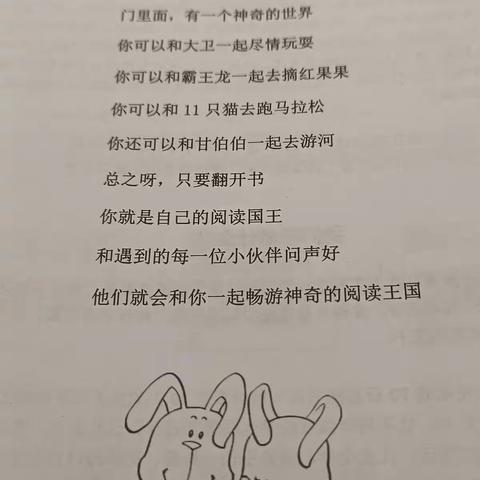 门里面，有一个神奇的世界
你可以和大卫一起尽情玩耍
你可以和霸王龙一起去摘红果果
你可以和 11 只猫去跑马拉松
你还可以和甘伯伯一起去游河
总之呀，只要翻开书
你就是自己的阅读国王
和遇到的每一位小伙伴问声好
他们就会和你一起畅游神奇的阅读王国